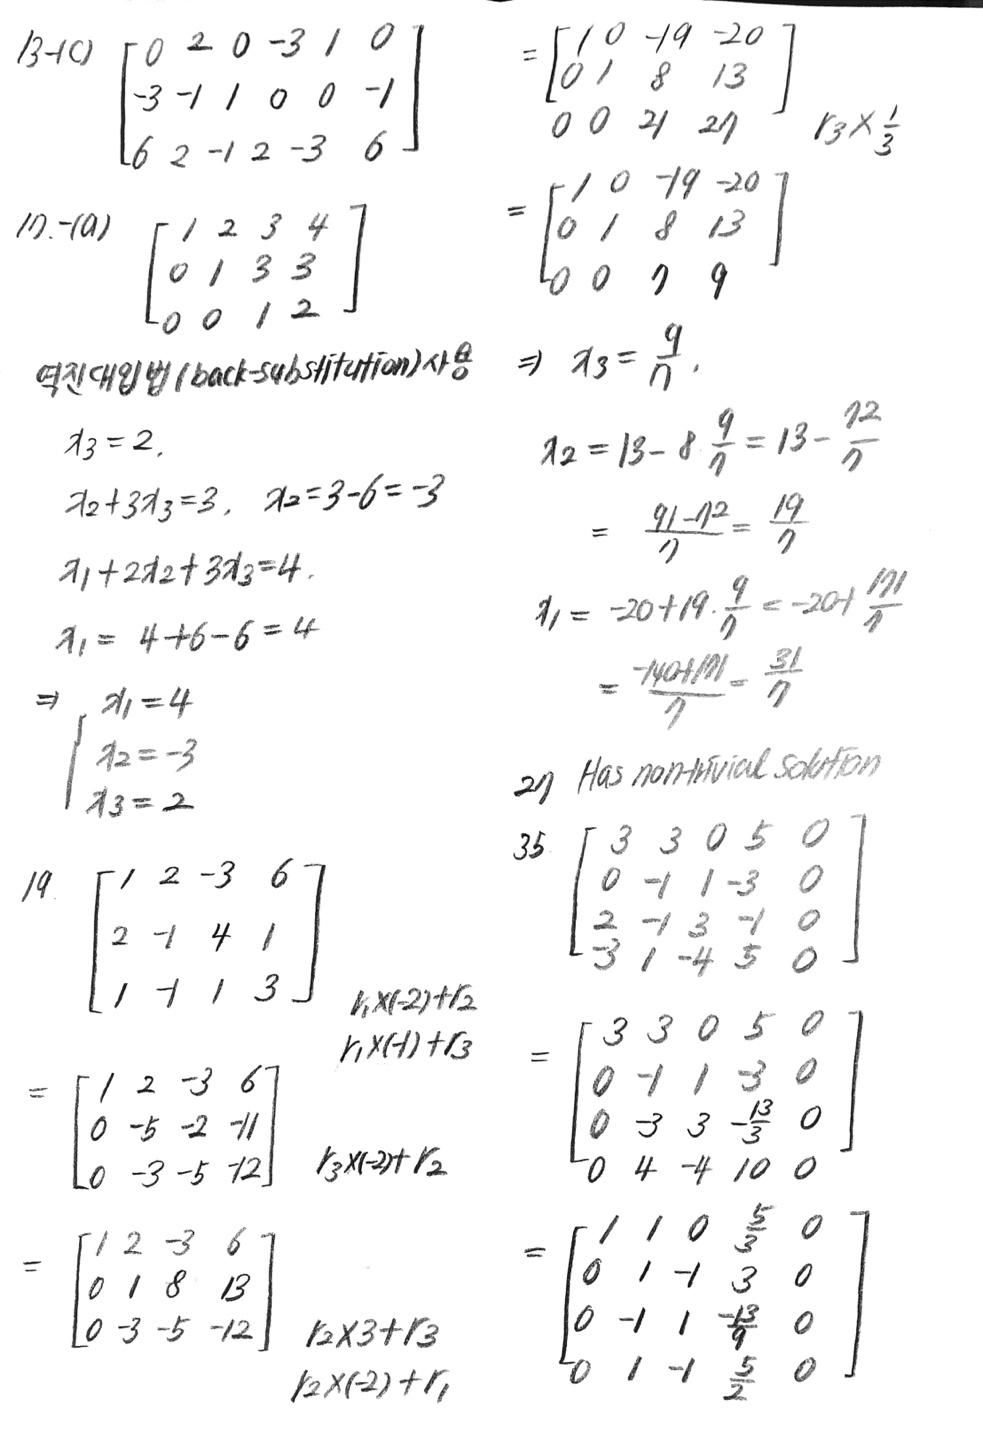 13-(c) [0 2 0 -3 1 0
-3 -1 1 0 0 -1
6 2 -1 2 -3 6]
17.-(a) [1 2 3 4
0 1 3 3
0 0 1 2]
역진대입법(back-substitution)사용
x3=2.
x2+3x3=3. x2=3-6=-3
x1+2x2+3x3=4.
x1= 4+6-6=4
⇒ { x1=4
x2=-3
x3=2
19. [1 2 -3 6
2 -1 4 1
1 -1 1 3]
r1×(-2)+r2
r1×(-1)+r3
= [1 2 -3 6
0 -5 -2 -11
0 -3 -5 -12] r3×(-2)+r2
= [1 2 -3 6
0 1 8 13
0 -3 -5 -12] r2×3+r3
r2×(-2)+r1
= [1 0 -19 -20
0 1 8 13
0 0 21 27] r3×1/3
= [1 0 -19 -20
0 1 8 13
0 0 7 9]
⇒ x3=9/7.
x2=13-8·9/7=13-72/7
= 91-72/7=19/7
x1= -20+19·9/7=-20+171/7
= -140+171/7=31/7
27 Has non-trivial solution
35 [3 3 0 5 0
0 -1 1 -3 0
2 -1 3 -1 0
-3 1 -4 5 0]
= [3 3 0 5 0
0 -1 1 -3 0
0 -3 3 -13/3 0
0 4 -4 10 0]
= [1 1 0 5/3 0
0 1 -1 3 0
0 -1 1 -13/9 0
0 1 -1 5/2 0]